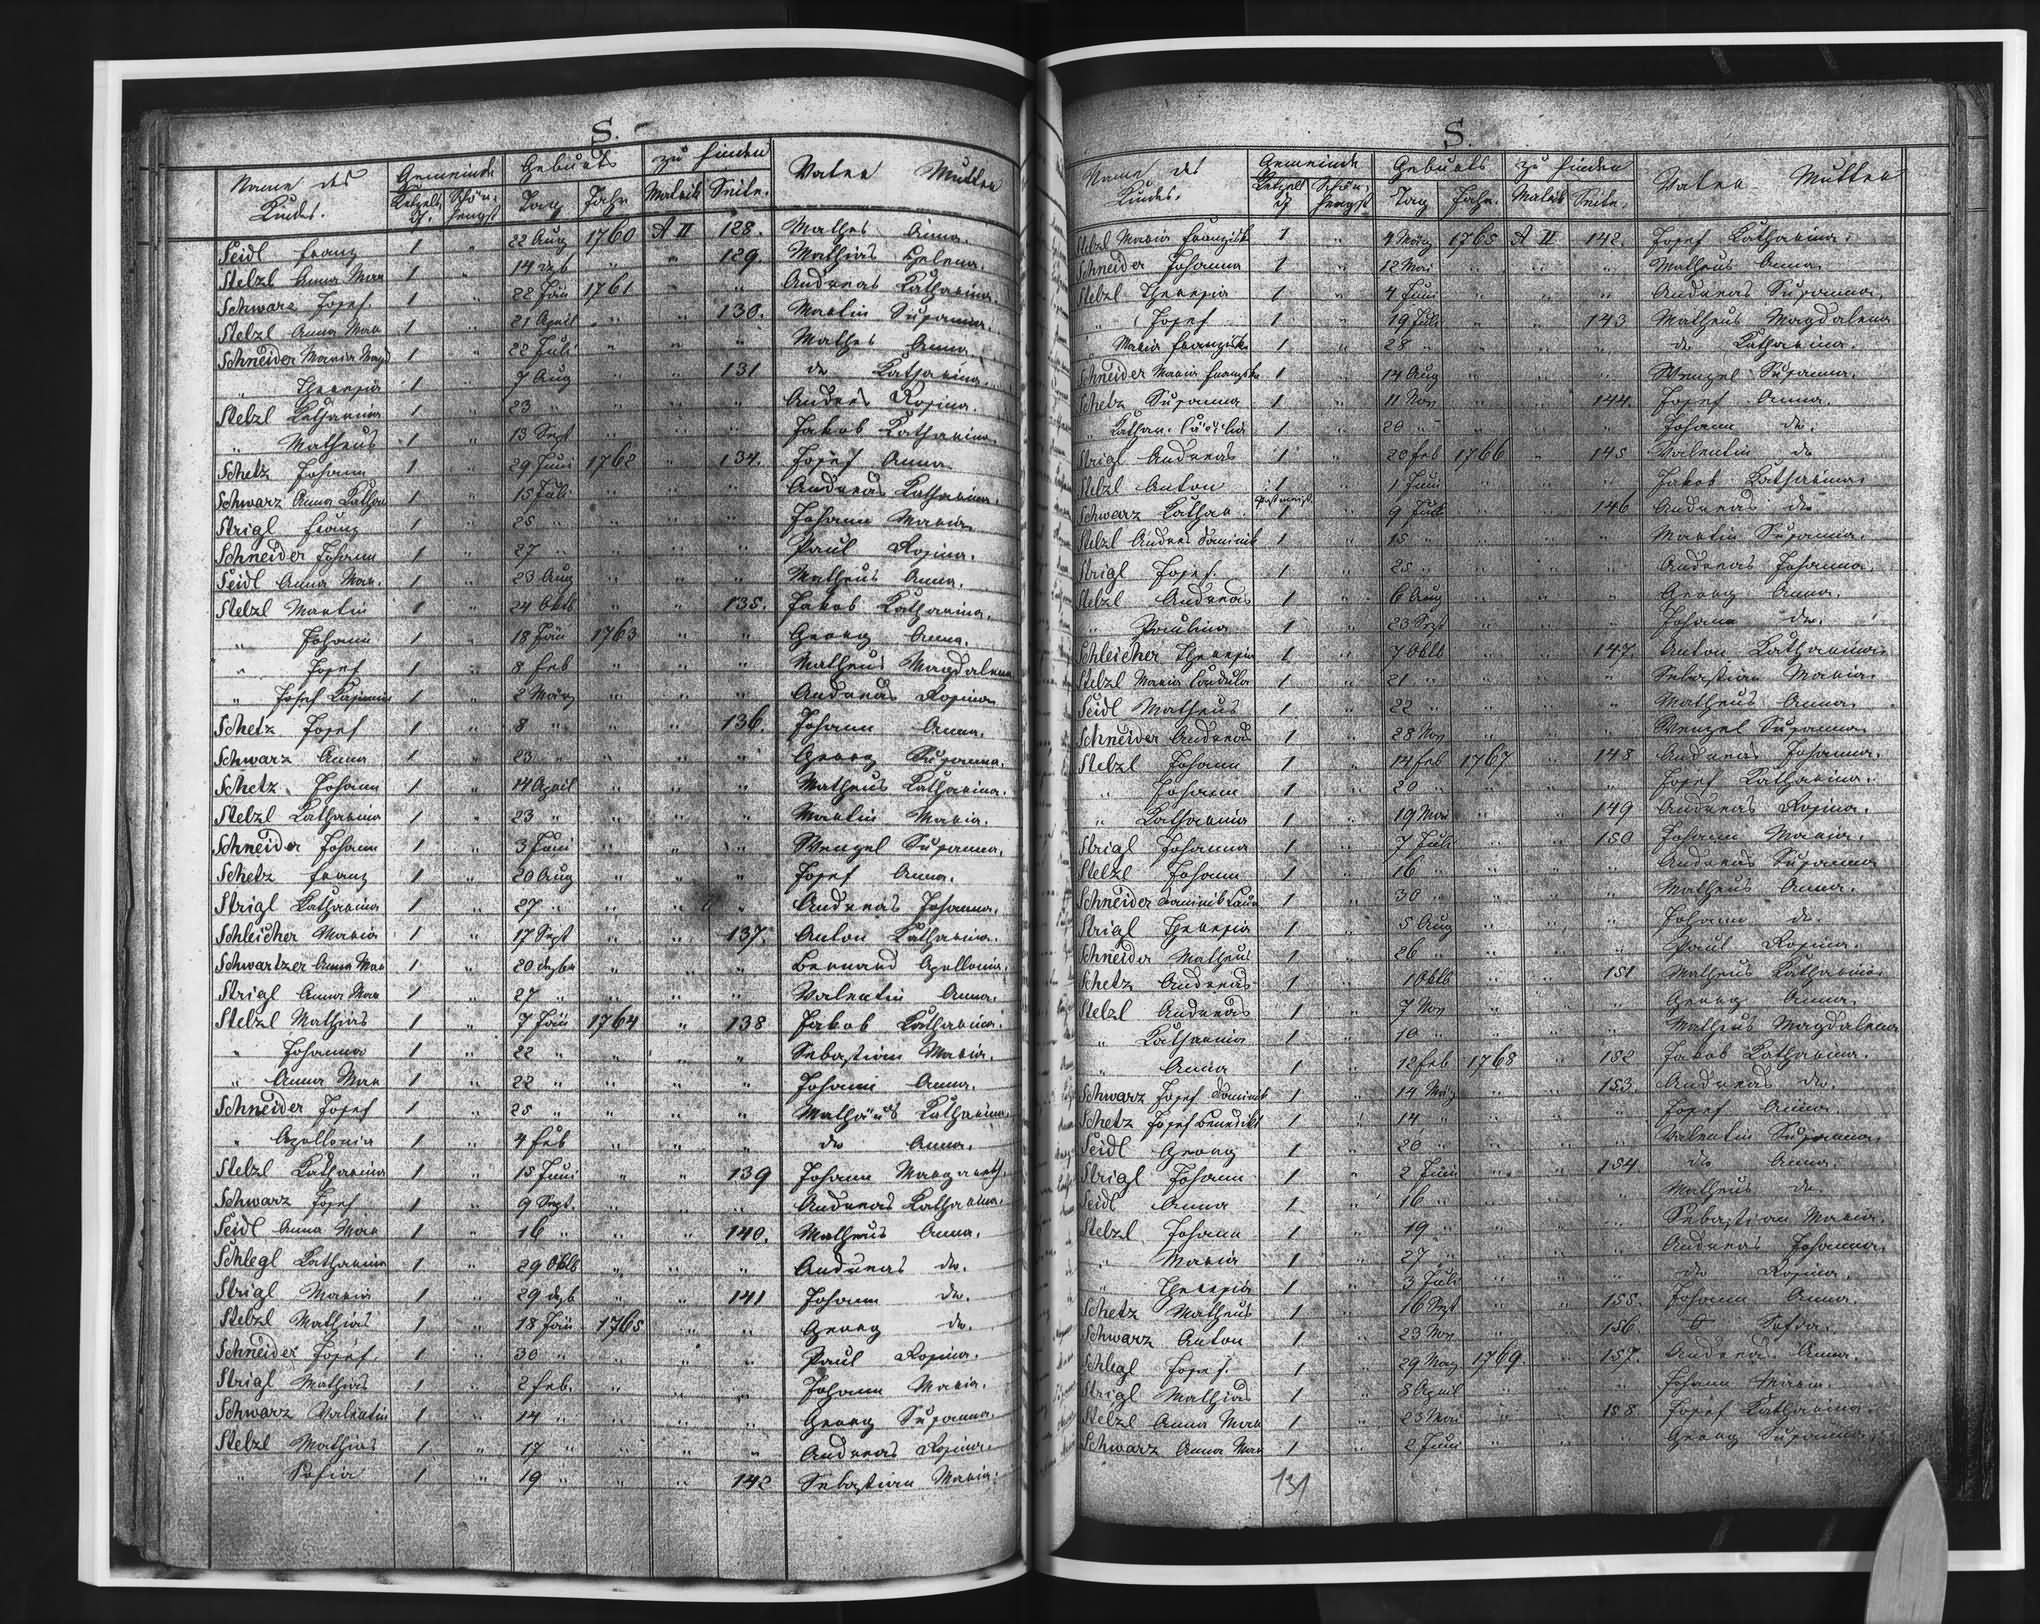 S.
Name des Kindes. Gemeinde Geburts zu finden Vater Mutter
Ketzelsdf. Schönhengst Tag Jahr Matrik Seite.
Seidl Franz 1 " 22 Aug 1760 A II 128. Mathes Anna.
Stelzl Anna Mar 1 " 14 dzb " " 129. Mathias Helena.
Schwarz Josef 1 " 22 Jän 1761 " " Andreas Katharina.
Stelzl Anna Mar 1 " 21 April " " 130. Martin Susanna.
Schneider Maria Magd 1 " 22 Juli " " " Mathes Anna.
" Theresia 1 " 7 Aug " " 131 do Katharina.
Stelzl Katharina 1 " 23 " " " " Andreas Rosina.
" Matheus 1 " 13 Sept " " " Jakob Katharina.
Schetz Johann 1 " 29 Juni 1762 " 134. Josef Anna.
Schwarz Anna Kathar 1 " 15 Juli " " " Andreas Katharina.
Strigl Franz 1 " 25 " " " " Johann Maria.
Schneider Johann 1 " 27 " " " " Paul Rosina.
Seidl Anna Mar. 1 " 23 Aug " " " Matheus Anna.
Stelzl Martin 1 " 24 Oktb " " 135. Jakob Katharina.
" Johann 1 " 18 Jän 1763 " " Georg Anna.
" Josef 1 " 8 Feb " " " Matheus Magdalena
" Josef Kasimir 1 " 2 März " " " Andreas Rosina
Schetz Josef 1 " 8 " " " 136. Johann Anna.
Schwarz Anna 1 " 23 " " " " Georg Susanna.
Schetz Johann 1 " 14 April " " " Matheus Katharina.
Stelzl Katharina 1 " 23 " " " " Martin Maria.
Schneider Johann 1 " 3 Juni " " " Wenzel Susanna.
Schetz Franz 1 " 20 Aug " " " Josef Anna.
Strigl Katharina 1 " 27 " " " " Andreas Johanna.
Schleicher Maria 1 " 17 Sept " " 137. Anton Katharina.
Schwartzer Anna Mar 1 " 20 dezbr " " " Bernard Apollonia.
Strigl Anna Mar 1 " 27 " " " " Valentin Anna.
Stelzl Mathias 1 " 7 Jän 1764 " 138 Jakob Katharina.
" Johanna 1 " 22 " " " " Sebastian Maria.
" Anna Mar 1 " 22 " " " " Johann Anna.
Schneider Josef 1 " 25 " " " " Mathäus Katharina.
" Apollonia 1 " 4 Feb " " " do Anna.
Stelzl Katharina 1 " 15 Juni " " 139 Johann Margareth.
Schwarz Josef 1 " 9 Sept. " " " Andreas Katharina.
Seidl Anna Mar 1 " 16 " " " 140. Matheus Anna.
Schlegl Katharina 1 " 29 Oktb " " " Andreas do.
Strigl Maria 1 " 29 dezb " " 141 Johann do.
Stelzl Mathias 1 " 18 Jän 1765 " " Georg do.
Schneider Josef. 1 " 30 " " " " Paul Rosina.
Strigl Mathias 1 " 2 Feb. " " " Johann Maria.
Schwarz Valentin 1 " 14 " " " " Georg Susanna.
Stelzl Mathias 1 " 17 " " " " Andreas Rosina.
" Sofia 1 " 19 " " " 142 Sebastian Maria.
S.
Name des Kindes. Gemeinde Geburts zu finden Vater Mutter
Ketzelsdf Schönhengst Tag Jahr. Matrik Seite.
Stelzl Maria Franziska 1 " 4 März 1765 A II 142. Josef Katharina.
Schneider Johanna 1 " 12 Mai " " " Matheus Anna.
Stelzl Theresia 1 " 4 Juni " " " Andreas Susanna.
" Josef 1 " 19 Juli " " 143 Matheus Magdalena
" Maria Franziska 1 " 28 " " " " do Katharina.
Schneider Maria Franziska 1 " 14 Aug " " " Wenzel Susanna.
Schetz Susanna 1 " 11 Nov " " 144. Josef Anna.
" Kathar. Cäcilia 1 " 20 " " " " Johann do.
Strigl Andreas 1 " 20 Feb 1766 " 145 Valentin do
Stelzl Anton 1 " 1 Juni " " " Jakob Katharina.
Schwarz Kathar. 1 " 9 Juli " " 146 Andreas do
Stelzl Andreas Dominik 1 " 15 " " " " Martin Susanna.
Strigl Josef. 1 " 25 " " " " Andreas Johanna.
Stelzl Andreas 1 " 6 Aug " " " Georg Anna.
" Paulina 1 " 23 Sept " " " Johann do.
Schleicher Theresia 1 " 7 Oktb " " 147. Anton Katharina.
Stelzl Maria Kordula 1 " 21 " " " " Sebastian Maria.
Seidl Matheus 1 " 22 " " " " Matheus Anna.
Schneider Andreas 1 " 28 Nov " " " Wenzel Susanna.
Stelzl Johann 1 " 14 Feb 1767 " 148 Andreas Johanna.
" Johann 1 " 20 " " " " Josef Katharina.
" Katharina 1 " 19 Mai " " 149 Andreas Rosina.
Strigl Johanna 1 " 7 Juli " " 150 Johann Maria.
Stelzl Johann 1 " 16 " " " " Andreas Susanna
Schneider Dominik Laur 1 " 30 " " " " Matheus Anna.
Strigl Theresia 1 " 5 Aug " " " Johann do.
Schneider Matheus 1 " 26 " " " " Paul Rosina.
Schetz Andreas 1 " 1 Oktb " " 151 Matheus Katharina.
Stelzl Andreas 1 " 7 Nov " " " Georg Anna.
" Katharina 1 " 10 " " " " Matheus Magdalena
" Anna 1 " 12 Feb 1768 " 152 Jakob Katharina.
Schwarz Josef Dominik 1 " 14 März " " 153. Andreas do.
Schetz Josef Benedikt 1 " 14 " " " " Josef Anna.
Seidl Georg 1 " 20 " " " " Valentin Susanna.
Strigl Johann 1 " 2 Juni " " 154. do Anna.
Seidl Anna 1 " 16 " " " " Matheus do.
Stelzl Johann 1 " 19 " " " " Sebastian Maria.
" Maria 1 " 27 " " " " Andreas Johanna.
" Theresia 1 " 3 Juli " " " do Rosina.
Schetz Matheus 1 " 16 Sept " " 155. Johann Anna.
Schwarz Anton 1 " 23 Nov " " 156. 0 Sofia.
Schlegl Josef. 1 " 29 März 1769. " 157. Andreas Anna.
Strigl Mathias 1 " 8 April " " " Johann Maria.
Stelzl Anna Mar 1 " 23 Mai " " 158. Josef Katharina.
Schwarz Anna Mar 1 " 2 Juni " " " Georg Susanna.
131